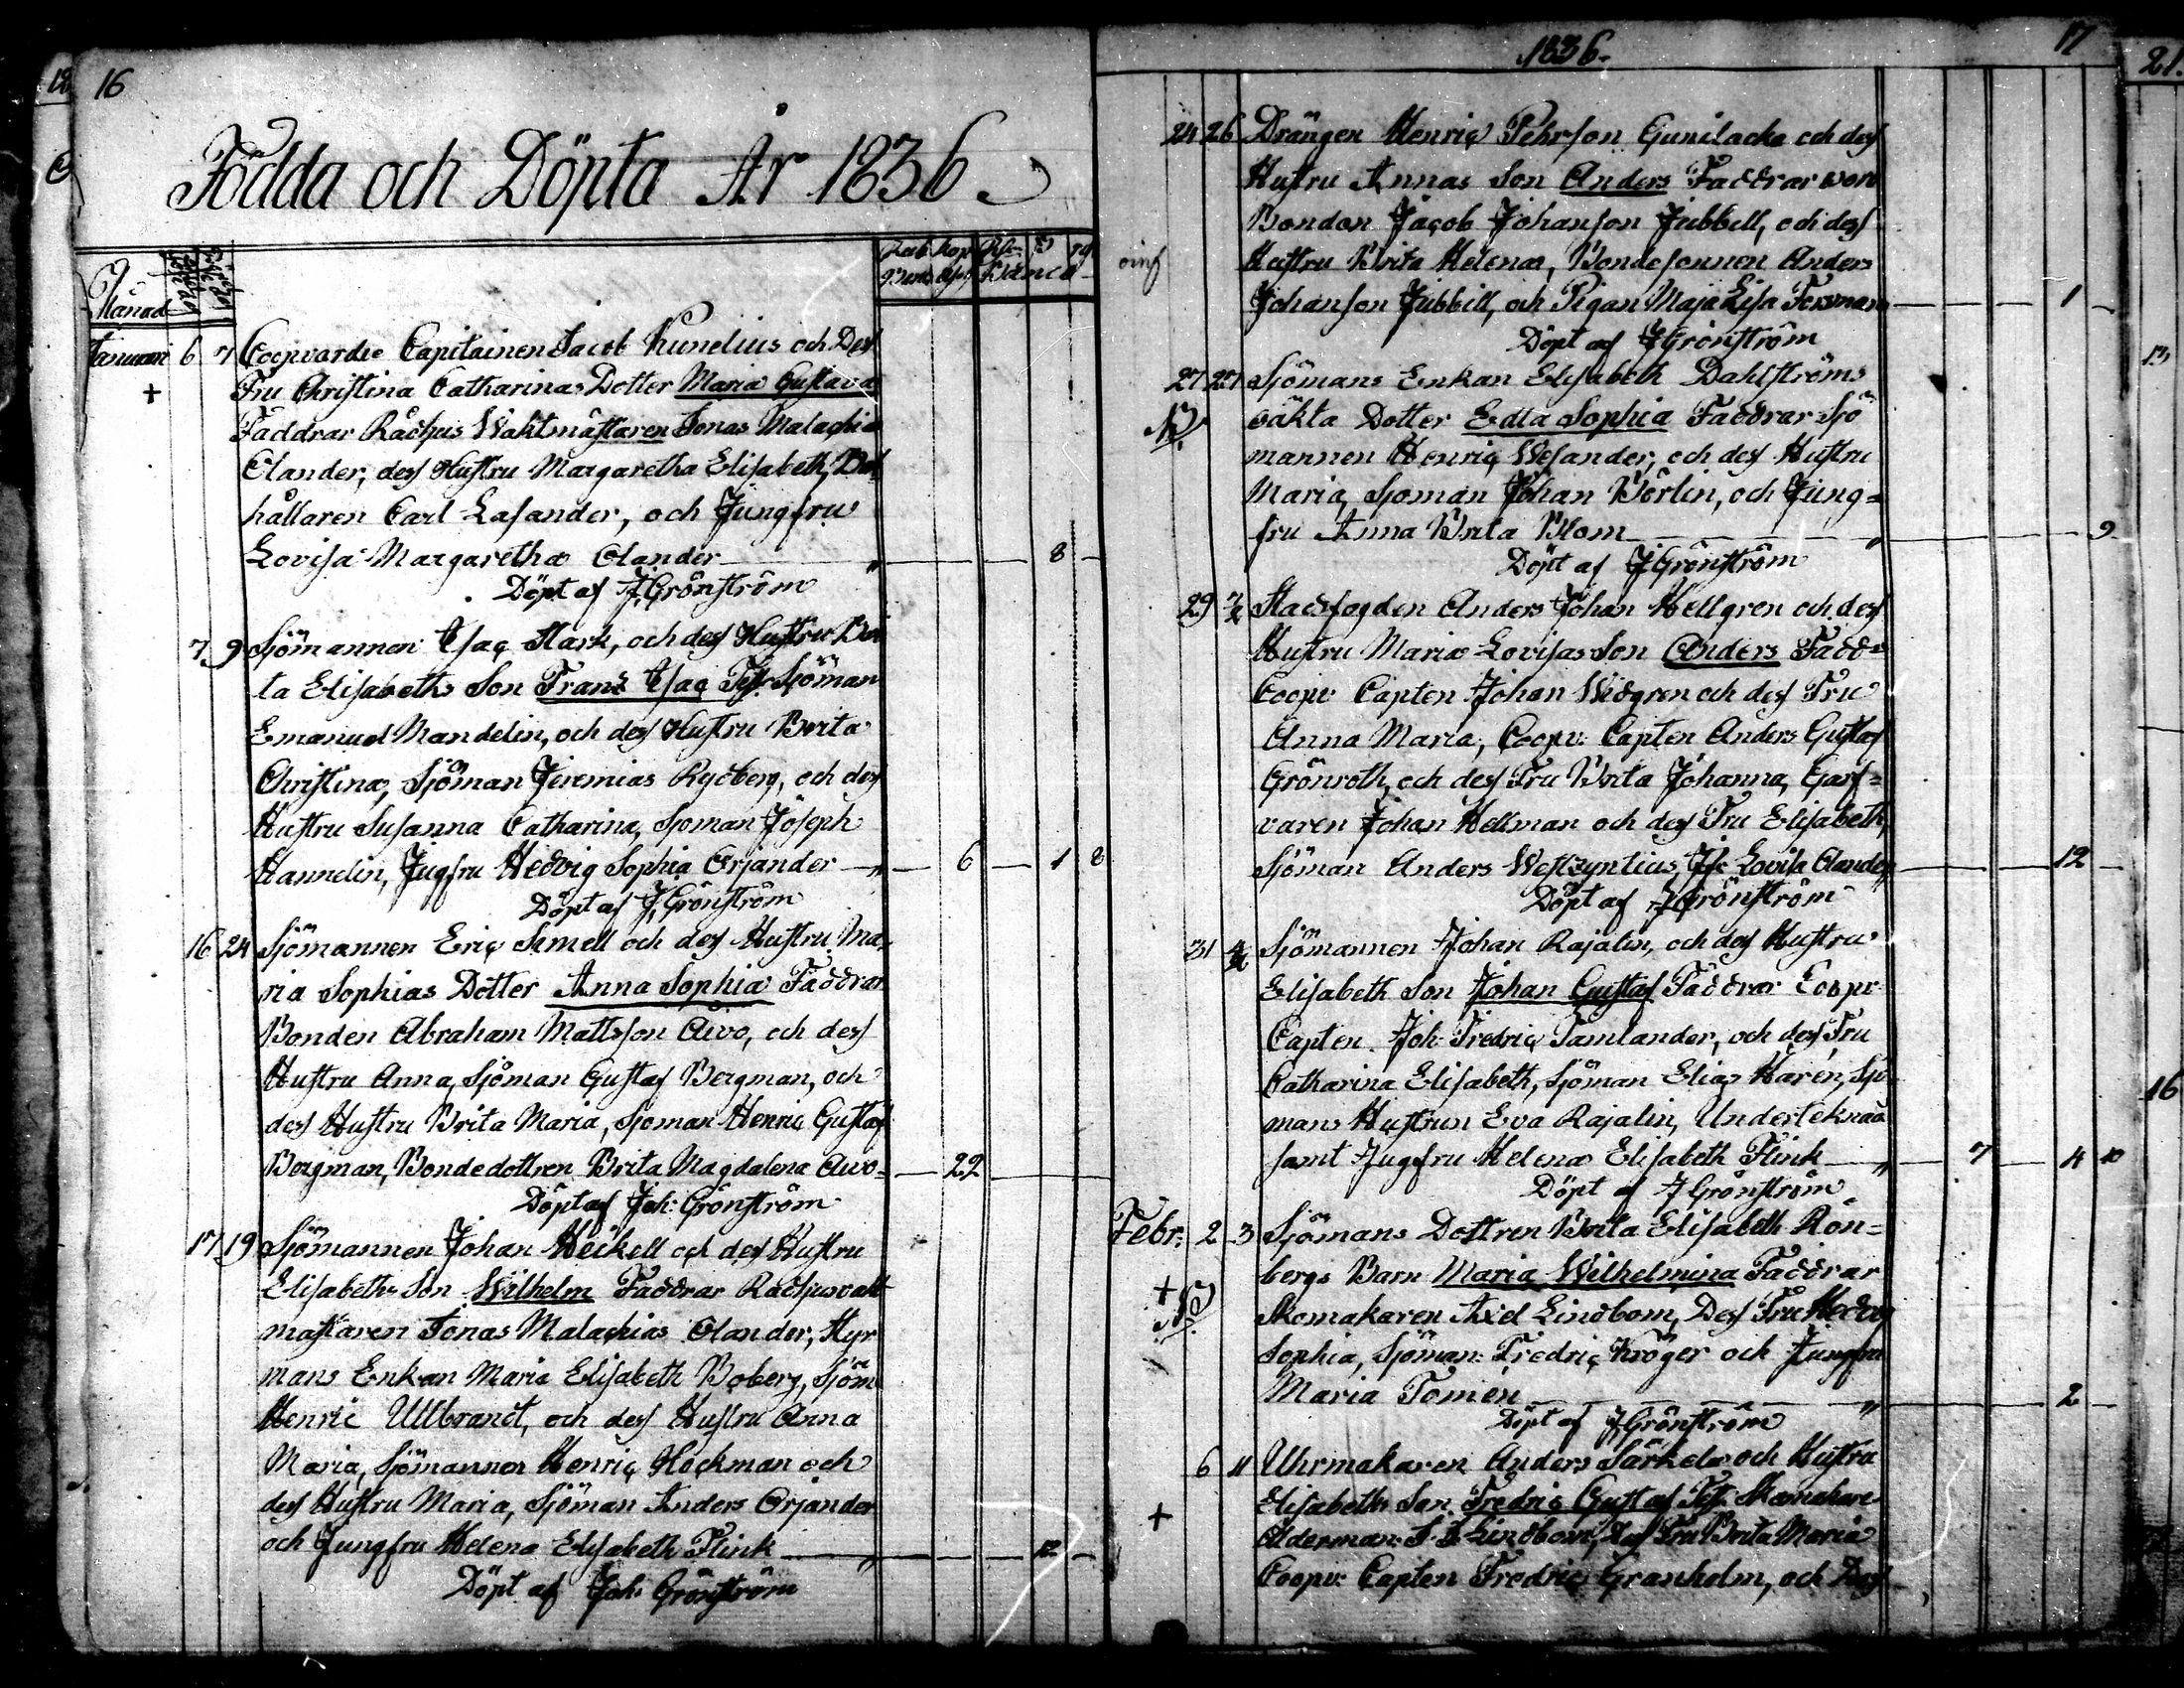 16
Födda och Döpta År 1836.
Månad
Januari 6 7 Coopvardie Capitainen Jacob Kunelius och Dess
Fru Christina Catharinas Dotter Maria Gustava
Faddrar Rådhus Waktmästaren Jonas Malachias
Olander, dess Hustru Margaretha Elisabeth,
hållaren Carl Lasander, och Jungfru
Lovisa Margaretha Olander " 8
Döpt af J. Grönström
7 9 Sjömannen Isac Stark, och dess Hustru Bri
ta Elisabeths Son Frans Isac Test. Sjöman
Emanuel Mandelin, och dess Hustru Brita
Christina, Sjöman Jeremias Rydberg, och dess
Hustru Susanna Catharina, Sjöman Joseph
Hannelin, Jugfru Hedvig Sophia Orjander " 6 1 8
Döpt af J. Grönström
16 24 Sjömannen Eric Semell och dess Hustru Ma
ria Sophias Dotter Anna Sophia Faddrar
Bonden Abraham Mattsson Aivo, och dess
Hustru Anna, Sjöman Gustaf Bergman, och
dess Hustru Brita Maria, Sjöman Henric Gustaf
Bergman, Bondedottren Brita Magdalena Aivo 22
Döpt af Joh: Grönström
17 19 Sjömannen Johan Heickell och dess Hustru
Elisabeths Son Wilhelm Faddrar Rådhusvakt
mästaren Jonas Malachias Olander, Styr
mans Enkan Maria Elisabeth Boberg, Sjöm
Henric Ullbrandt, och dess Hustru Anna
Maria, Sjömannen Henric Hackman och
dess Hustru Maria, Sjöman Anders Orjander
och Jungfru Helena Elisabeth Flink " 12
Döpt af Joh: Grönström
1836. 17
24 26 Drängen Henric Pehrson Gunilacka och dess
Hustru Annas Son Anders Faddrar woro
Bonden Jacob Johanson Jubbell, och dess
Hustru Brita Helena, Bondesonnen Anders
Johanson Jubbill, och Pigan Maja Lisa Forsman 1
Döpt af J Grönström
27 27 Sjömans Enkan Elisabeth Dahlströms
oäkta Dotter Edla Sophia Faddrar Sjö
mannen Henric Wesander, och dess Hustru
Maria, Sjöman Johan Börlin, och Jung=
fru Anna Brita Blom " 9
Döpt af J Grönström
29 7/2 Stadsfogden Anders Johan Hellgren och dess
Hustru Maria Lovisas Son Anders Fadd=
Coopv: Capten Johan Widgren och dess Fru
Anna Maria, Coopv: Capten Anders Gustaf
Grönroth, och dess Fru Brita Johanna, Garf=
varen Johan Hellman och dess Fru Elisabeth,
Sjöman Anders Westzyntius, Jfr Lovisa Olander 12
Döpt af J Grönström
31 4/2 Sjömannen Johan Rajalin, och dess Hustru
Elisabeth Son Johan Gustaf Faddrar Coopv:
Capten Joh: Fredric Tamlander, och dess Fru
Catharina Elisabeth, Sjöman Elias Harén, Sjö
mans Hustrun Eva Rajalin, Underteknad
samt Jugfru Helena Elisabeth Flink " 7 4 10
Döpt af J Grönström
Febr: 2 3 Sjömans Dottren Brita Elisabeth Rön=
bergs Barn Maria Wilhelmina Faddrar
Skomakaren Axel Lindbom, Dess Fru Hedvig
Sophia, Sjöman: Fredric Kröger och Jungfru
Maria Tomén " 2
Döpt af J Grönström
6 11 Uhrmakaren Anders Särkelä och Hustru
Elisabeths Son Fredric Gustaf Test. Skomakare
Ålderman: Lindbom, dess Fru Brita Maria
Coopv: Capten Fredric Granholm, och Dess
21.
13
16